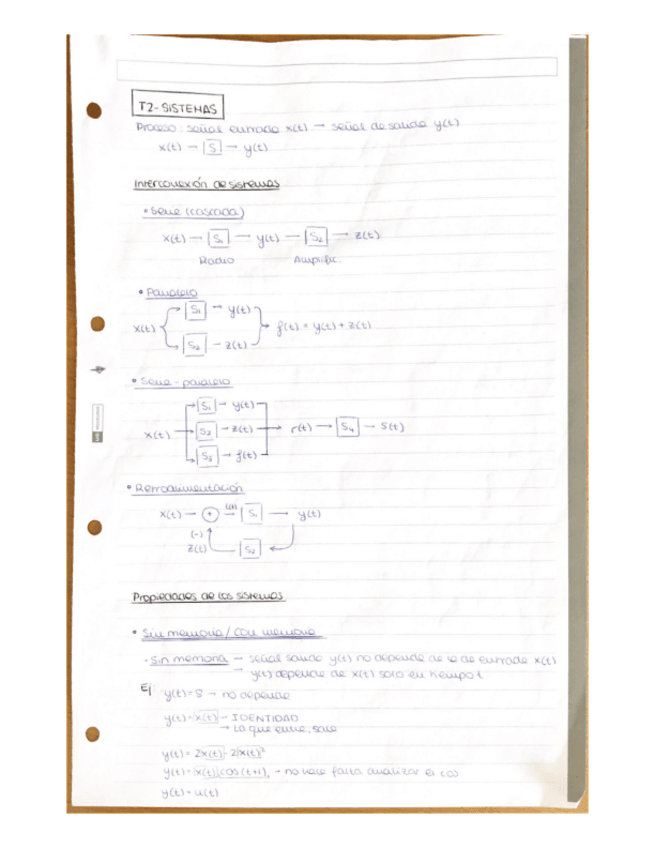 T2-SISTEMAS
Proceso: señal entrada x(t) → señal de salida y(t)
x(t) → S → y(t)
Interconexión de sistemas
• Serie (cascada)
x(t) → S₁ → y(t) → S₂ → z(t)
Radio Amplific.
• Paralelo
S₁ → y(t)
x(t) f(t) = y(t) + z(t)
S₂ → z(t)
• Serie - paralelo
S₁ → y(t)
x(t) S₂ → z(t) → r(t) → S₄ → s(t)
S₃ → f(t)
• Retroalimentación
x(t) → + → S₁ → y(t)
(-)
z(t) S₂
Propiedades de los sistemas
• Sin memoria / con memoria
- Sin memoria → señal salida y(t) no depende de la de entrada x(t)
→ y(t) depende de x(t) solo en tiempo t
Ej y(t) = 8 → no depende
y(t) = x(t) → IDENTIDAD
→ Lo que entra, sale
y(t) = 2x(t) - 2x(t)²
y(t) = x(t) cos(t+1) → no hace falta analizar el cos
y(t) = u(t)